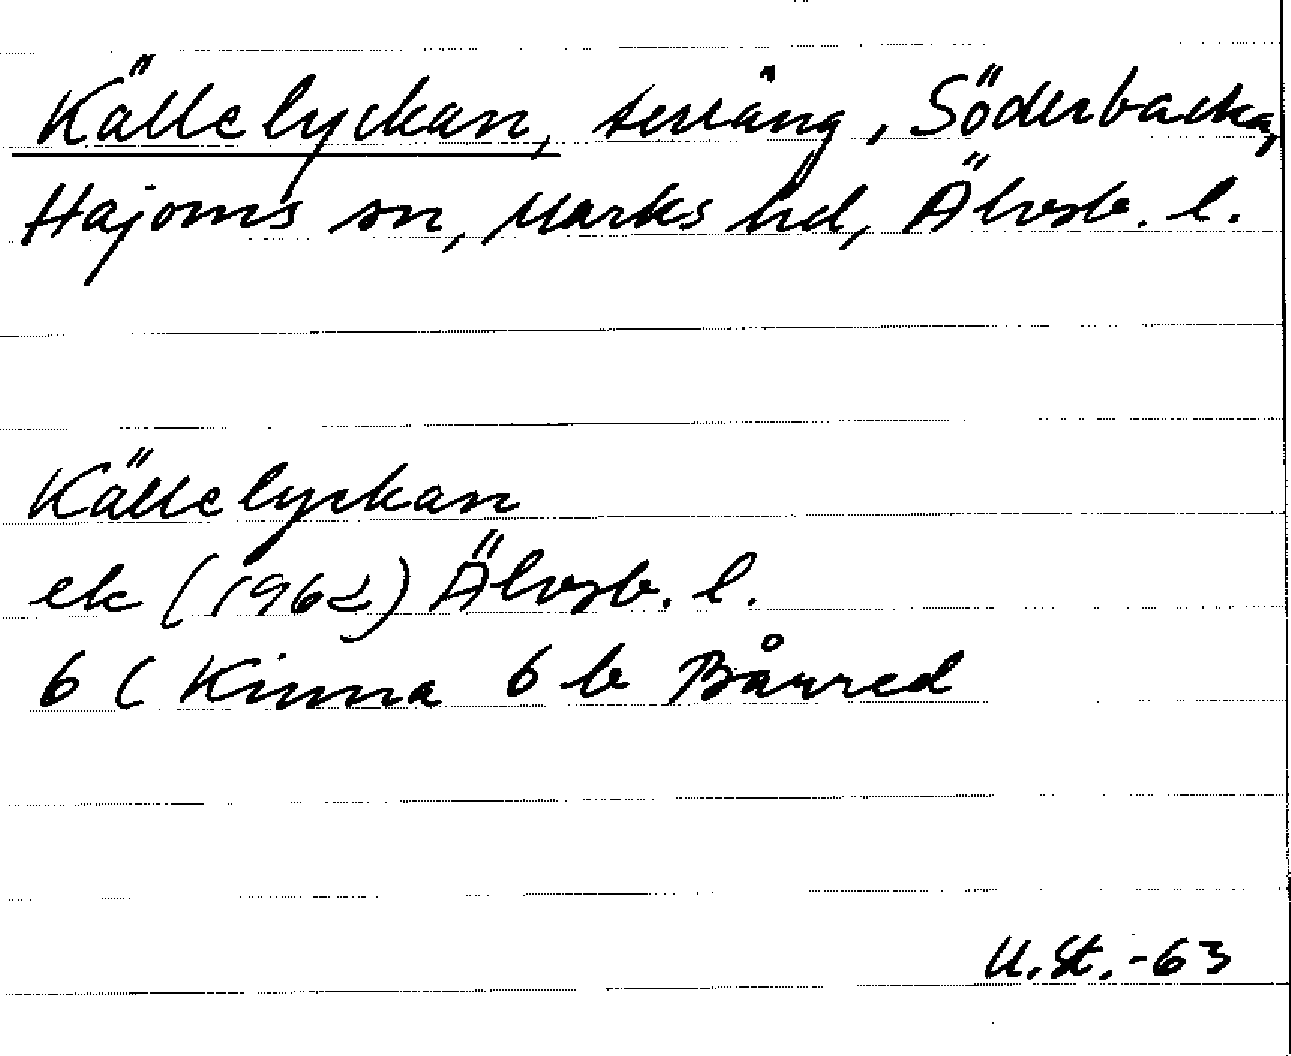 Källelyckan, terräng, Söderbacka,
Hajoms sn, Marks hd, Älvsb. l.
Källelyckan
ek (1962) Älvsb. l.
6 C Kinna 6 b Bårred
U.St.-63